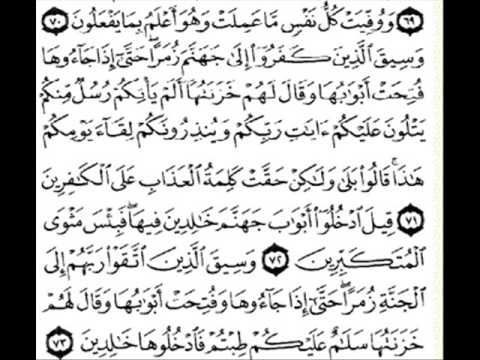 ٦٩ وَوُفِّيَتْ كُلُّ نَفْسٍ مَّا عَمِلَتْ وَهُوَ أَعْلَمُ بِمَا يَفْعَلُونَ ٧٠
وَسِيقَ ٱلَّذِينَ كَفَرُوٓا۟ إِلَىٰ جَهَنَّمَ زُمَرًا ۖ حَتَّىٰٓ إِذَا جَآءُوهَا
فُتِحَتْ أَبْوَٰبُهَا وَقَالَ لَهُمْ خَزَنَتُهَآ أَلَمْ يَأْتِكُمْ رُسُلٌ مِّنكُمْ
يَتْلُونَ عَلَيْكُمْ ءَايَٰتِ رَبِّكُمْ وَيُنذِرُونَكُمْ لِقَآءَ يَوْمِكُمْ
هَٰذَا ۚ قَالُوا۟ بَلَىٰ وَلَٰكِنْ حَقَّتْ كَلِمَةُ ٱلْعَذَابِ عَلَى ٱلْكَٰفِرِينَ
٧١ قِيلَ ٱدْخُلُوٓا۟ أَبْوَٰبَ جَهَنَّمَ خَٰلِدِينَ فِيهَا ۖ فَبِئْسَ مَثْوَى
ٱلْمُتَكَبِّرِينَ ٧٢ وَسِيقَ ٱلَّذِينَ ٱتَّقَوْا۟ رَبَّهُمْ إِلَى
ٱلْجَنَّةِ زُمَرًا ۖ حَتَّىٰٓ إِذَا جَآءُوهَا وَفُتِحَتْ أَبْوَٰبُهَا وَقَالَ لَهُمْ
خَزَنَتُهَا سَلَٰمٌ عَلَيْكُمْ طِبْتُمْ فَٱدْخُلُوهَا خَٰلِدِينَ ٧٣